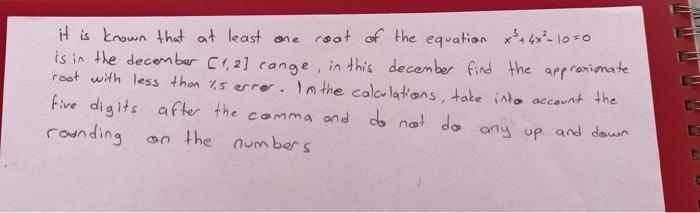 it is known that at least one root of the equation x⁵+4x²-10=0
is in the december [1,2] range, in this december find the approximate
root with less than %5 error. In the calculations, take into account the
five digits after the comma and do not do any up and down
rounding on the numbers